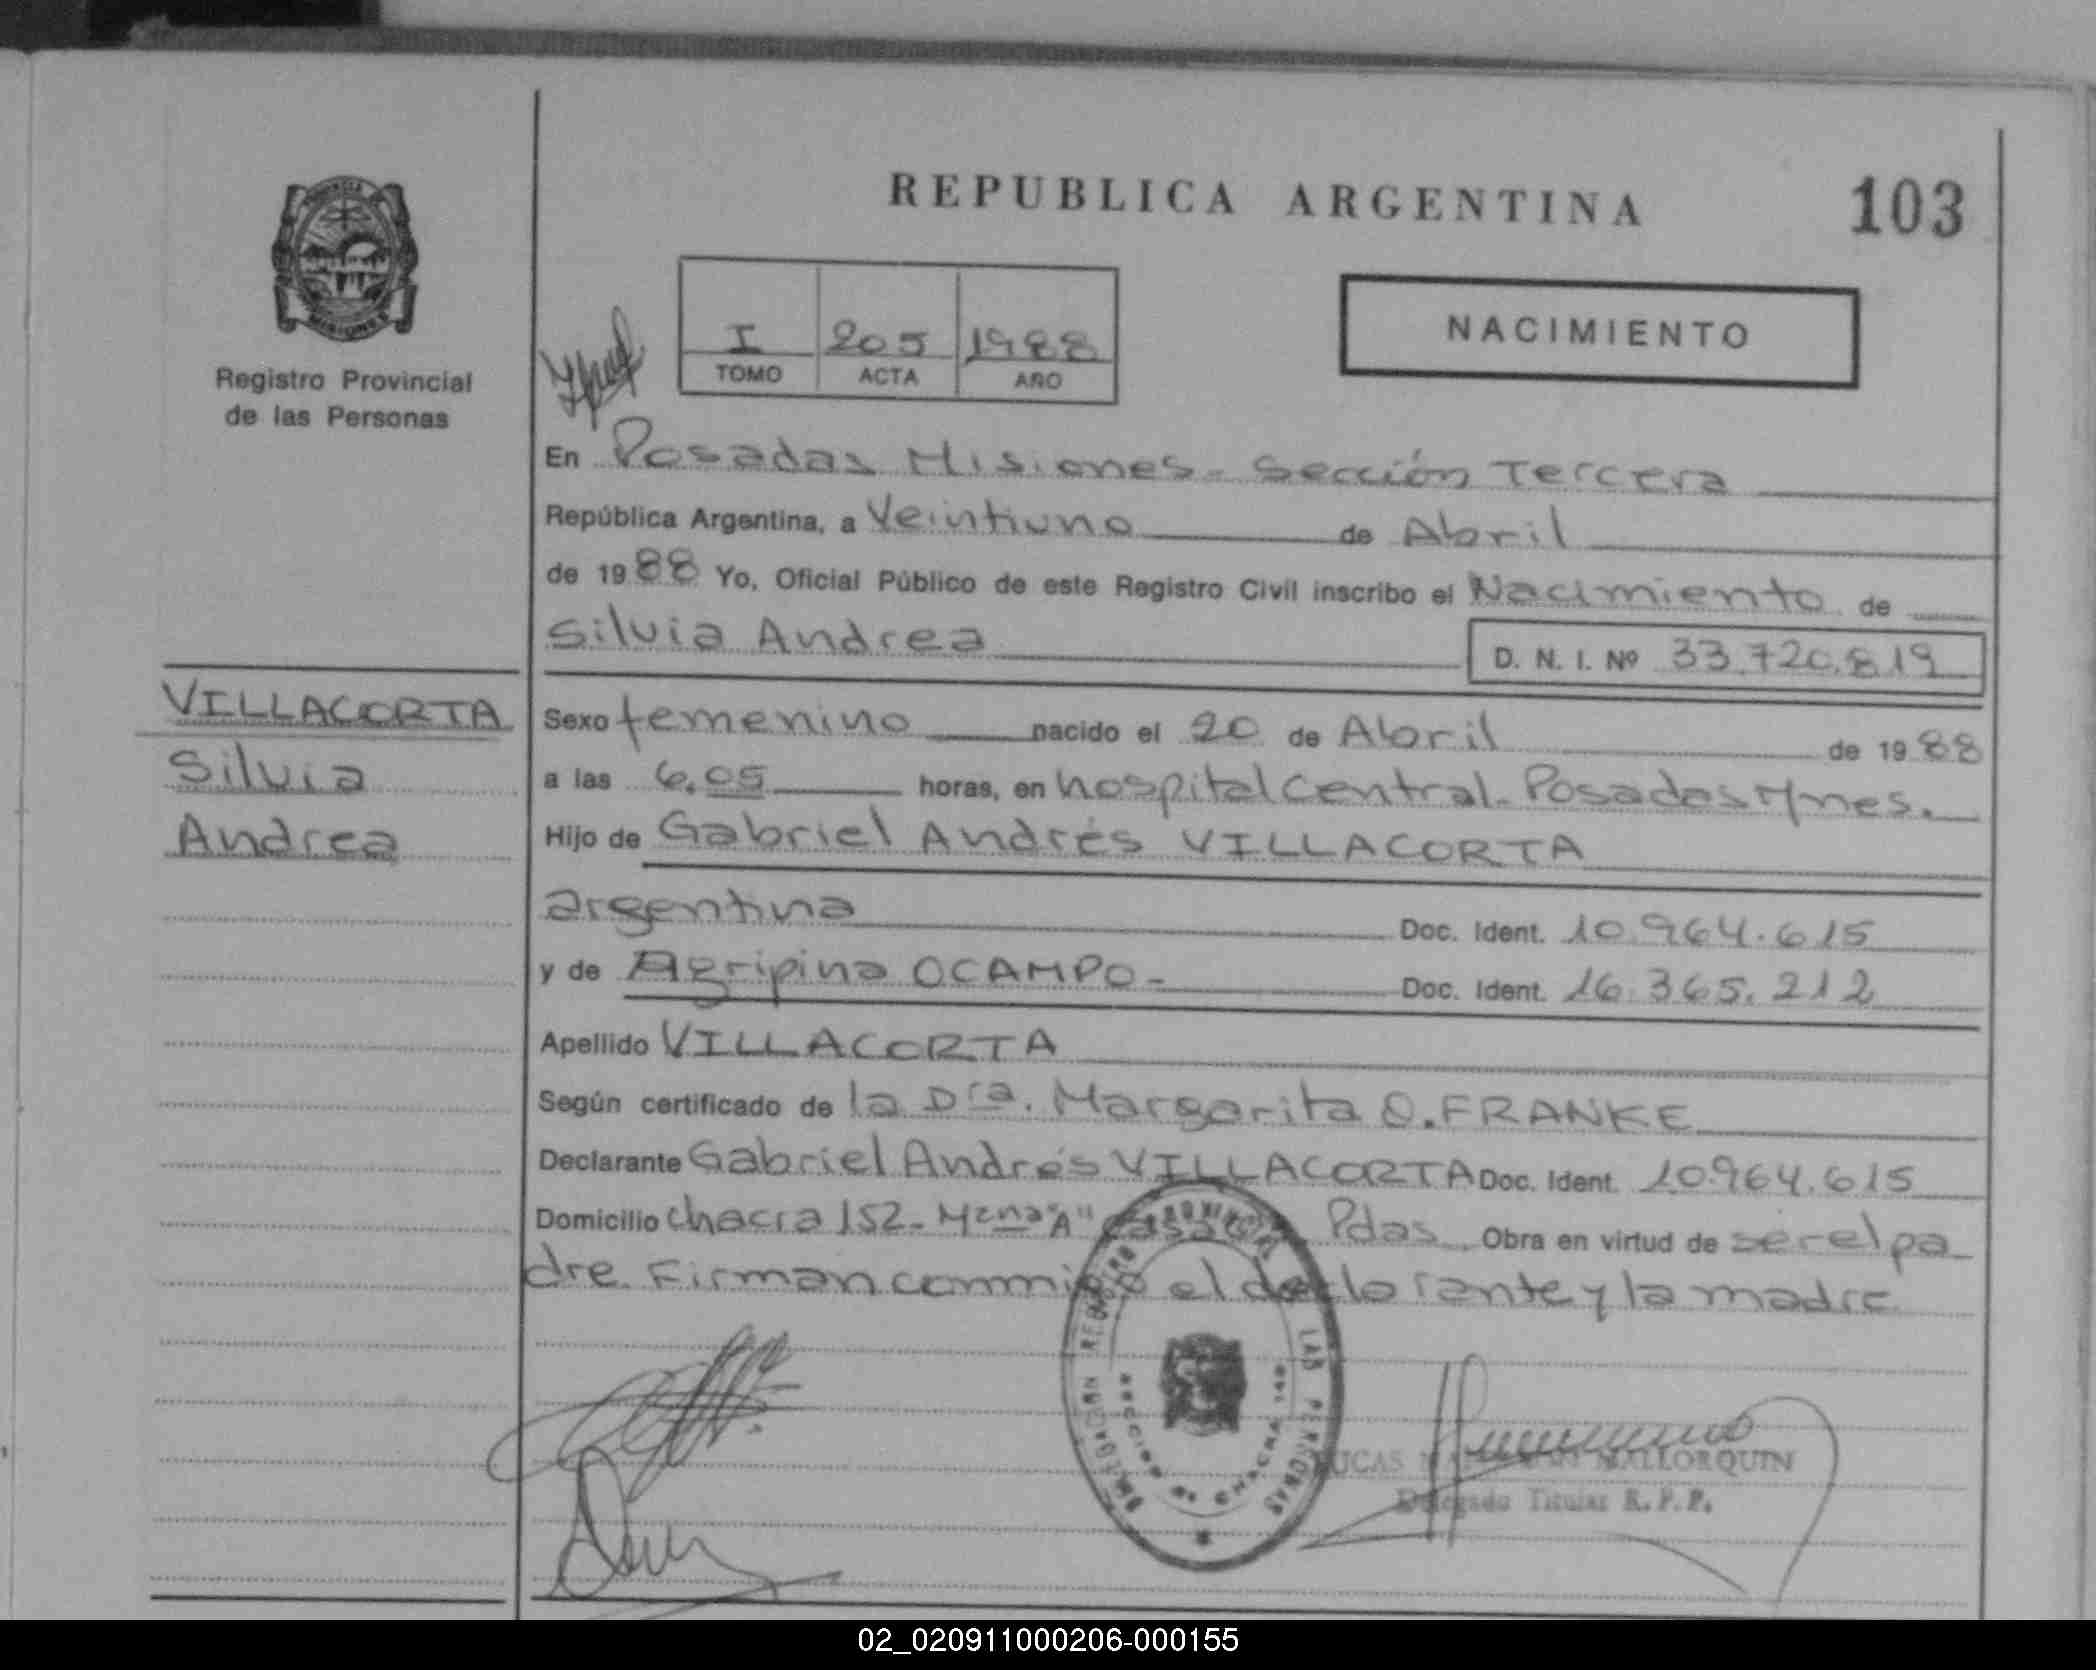 REPUBLICA ARGENTINA
103
PROVINCIA
MISIONES
Registro Provincial
de las Personas
I 205 1988
TOMO ACTA AÑO
NACIMIENTO
En Posadas Misiones - Sección Tercera
República Argentina, a Veintiuno de Abril
de 1988 Yo, Oficial Público de este Registro Civil inscribo el Nacimiento de
Silvia Andrea D. N. I. Nº 33.720.819
VILLACORTA
Silvia
Andrea
Sexo femenino nacido el 20 de Abril de 1988
a las 6,05 horas, en hospital Central - Posadas Mnes.
Hijo de Gabriel Andrés VILLACORTA
argentina Doc. Ident. 10.964.615
y de Agripina OCAMPO - Doc. Ident. 16.365.212
Apellido VILLACORTA
Según certificado de la Dra. Margarita O. FRANKE
Declarante Gabriel Andrés VILLACORTA Doc. Ident. 10.964.615
Domicilio Chacra 152 - Mzna "A" casa Pdas. Obra en virtud de ser el pa
dre. Firman conmigo el declarante y la madre
DELEGACION REGISTRO PROVINCIAL LAS PERSONAS
SECCION CHACRA
LUCAS MALLORQUIN
Delegado Titular R.P.P.
02_020911000206-000155